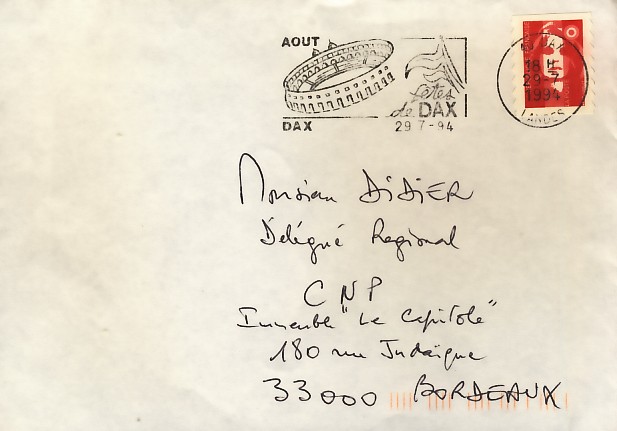 AOUT
DAX
fêtes
de DAX
29 7-94
DAX
18 H
29-7
1994
LANDES
Monsieur DiDiER
Délégué Regional
CNP
Immeuble "Le Capitole"
180 rue Judaïque
33000 BORDEAUX